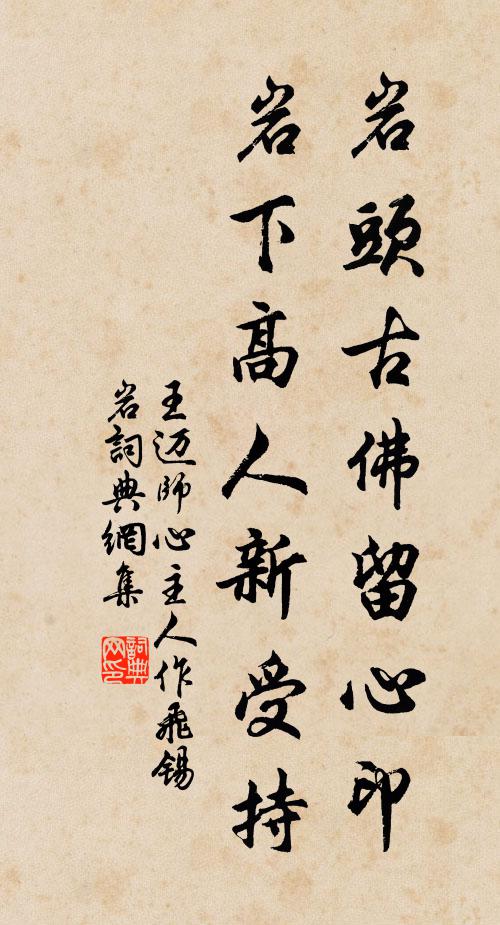 岩頭古佛留心印
岩下高人新受持
王迈師心主人作飛錫
岩詞典網集
詞典
网印